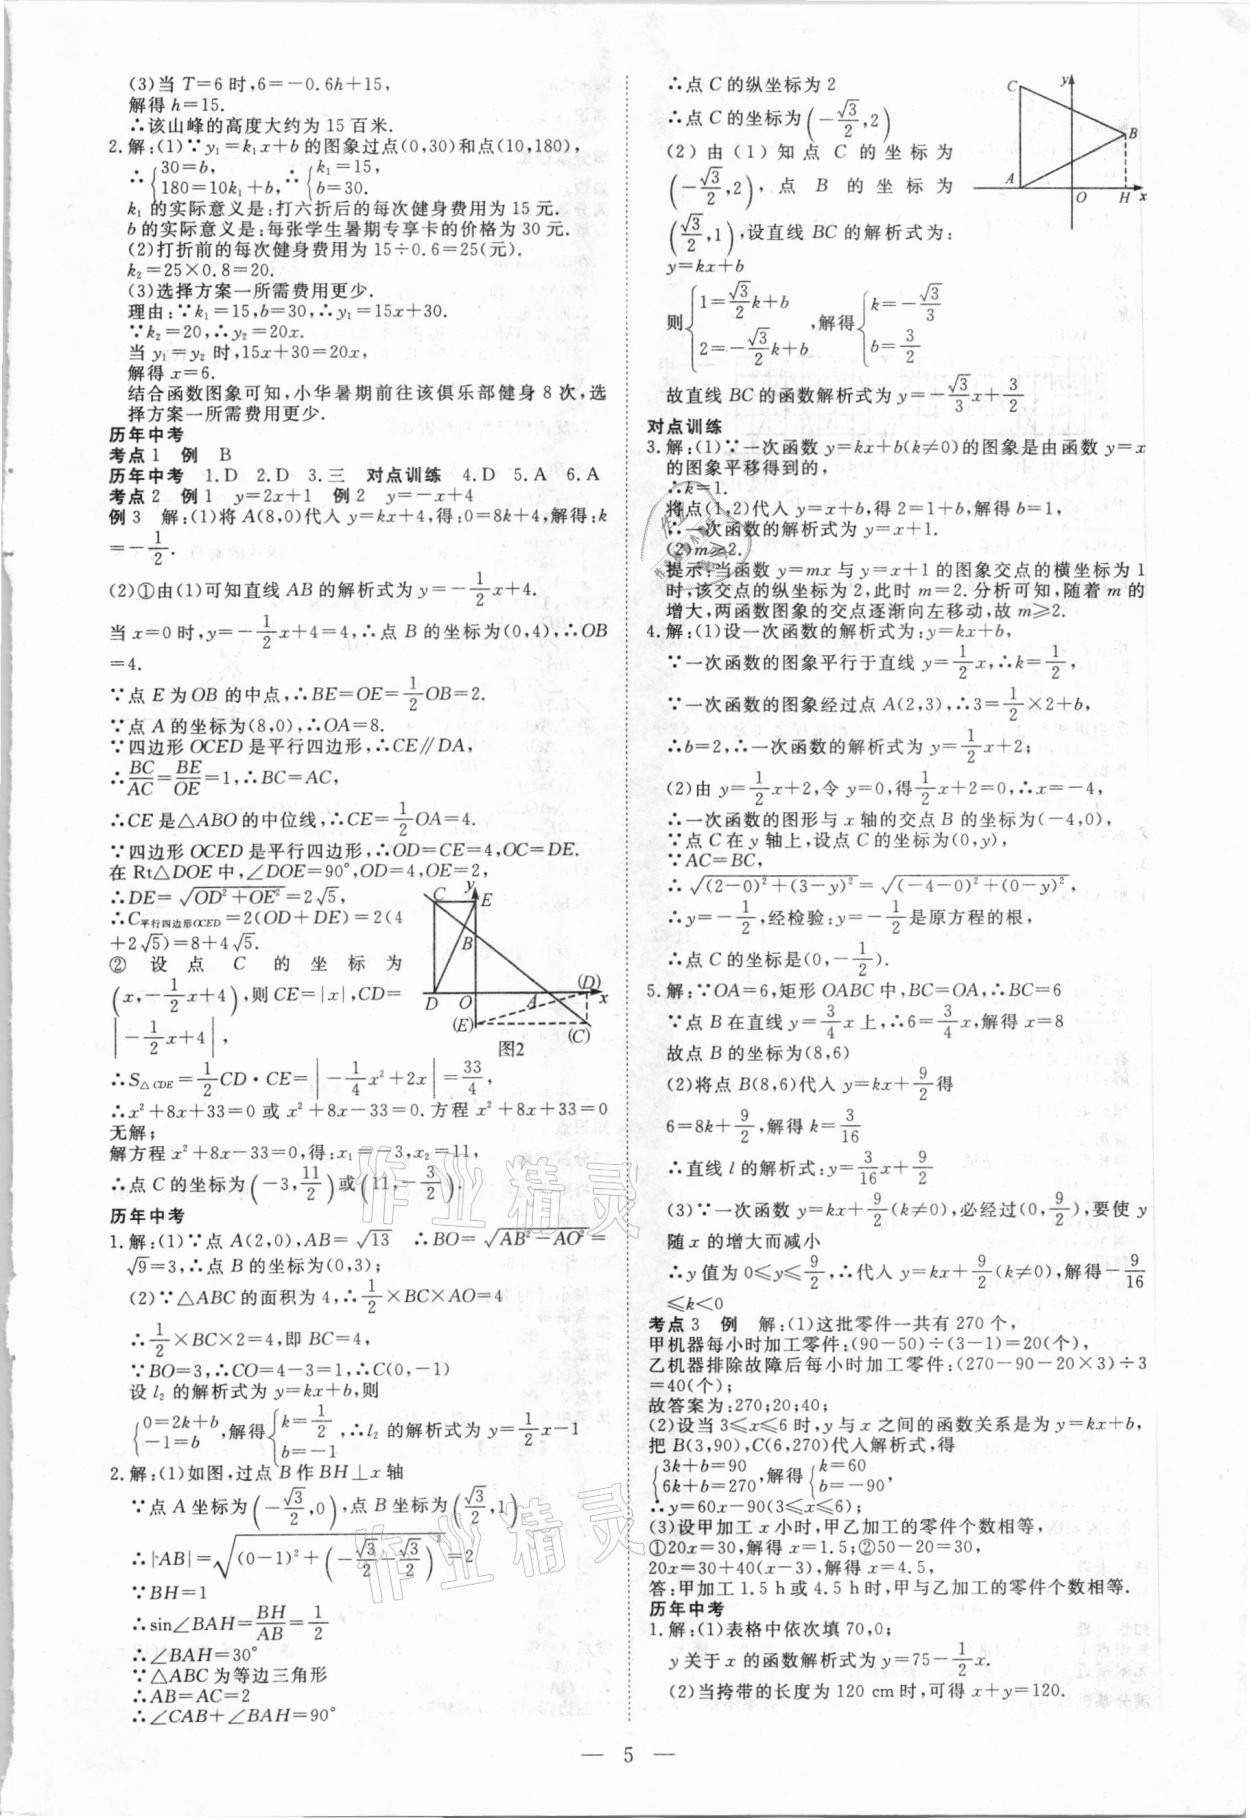 (3)当 T=6 时,6=-0.6h+15,
解得 h=15.
∴该山峰的高度大约为 15 百米.
2.解:(1)∵y₁=k₁x+b 的图象过点(0,30)和点(10,180),
∴{30=b, 180=10k₁+b, ∴{k₁=15, b=30.
k₁ 的实际意义是:打六折后的每次健身费用为 15 元.
b 的实际意义是:每张学生暑期专享卡的价格为 30 元.
(2)打折前的每次健身费用为 15÷0.6=25(元).
k₂=25×0.8=20.
(3)选择方案一所需费用更少.
理由:∵k₁=15,b=30,∴y₁=15x+30.
∵k₂=20,∴y₂=20x.
当 y₁=y₂ 时,15x+30=20x,
解得 x=6.
结合函数图象可知,小华暑期前往该俱乐部健身 8 次,选
择方案一所需费用更少.
历年中考
考点1 例 B
历年中考 1.D 2.D 3.三 对点训练 4.D 5.A 6.A
考点2 例1 y=2x+1 例2 y=-x+4
例3 解:(1)将 A(8,0)代入 y=kx+4,得:0=8k+4,解得:k
=-1/2.
(2)①由(1)可知直线 AB 的解析式为 y=-1/2x+4.
当 x=0 时,y=-1/2x+4=4,∴点 B 的坐标为(0,4),∴OB
=4.
∵点 E 为 OB 的中点,∴BE=OE=1/2OB=2.
∵点 A 的坐标为(8,0),∴OA=8.
∵四边形 OCED 是平行四边形,∴CE∥DA,
∴BC/AC=BE/OE=1,∴BC=AC,
∴CE 是△ABO 的中位线,∴CE=1/2OA=4.
∵四边形 OCED 是平行四边形,∴OD=CE=4,OC=DE.
在 Rt△DOE 中,∠DOE=90°,OD=4,OE=2,
∴DE=√(OD²+OE²)=2√5,
∴C平行四边形OCED=2(OD+DE)=2(4
+2√5)=8+4√5.
② 设 点 C 的 坐 标 为
(x,-1/2x+4),则 CE=|x|,CD=
|-1/2x+4|,
C y E
B
D O A (D) x
(E) (C)
图2
∴S△CDE=1/2CD·CE=|-1/4x²+2x|=33/4,
∴x²+8x+33=0 或 x²+8x-33=0.方程 x²+8x+33=0
无解;
解方程 x²+8x-33=0,得:x₁=-3,x₂=11,
∴点 C 的坐标为(-3,11/2)或(11,-3/2).
历年中考
1.解:(1)∵点 A(2,0),AB=√13 ∴BO=√(AB²-AO²)=
√9=3,∴点 B 的坐标为(0,3);
(2)∵△ABC 的面积为 4,∴1/2×BC×AO=4
∴1/2×BC×2=4,即 BC=4,
∵BO=3,∴CO=4-3=1,∴C(0,-1)
设 l₂ 的解析式为 y=kx+b,则
{0=2k+b -1=b,解得{k=1/2 b=-1,∴l₂ 的解析式为 y=1/2x-1
2.解:(1)如图,过点 B 作 BH⊥x 轴
∵点 A 坐标为(-√3/2,0),点 B 坐标为(√3/2,1)
∴|AB|=√((0-1)²+(-√3/2-√3/2)²)=2
∵BH=1
∴sin∠BAH=BH/AB=1/2
∴∠BAH=30°
∵△ABC 为等边三角形
∴AB=AC=2
∴∠CAB+∠BAH=90°
∴点 C 的纵坐标为 2
∴点 C 的坐标为(-√3/2,2)
(2) 由 (1) 知 点 C 的 坐 标 为
(-√3/2,2),点 B 的 坐 标 为
(√3/2,1),设直线 BC 的解析式为:
y=kx+b
C y
B
A O H x
则{1=√3/2k+b 2=-√3/2k+b,解得{k=-√3/3 b=3/2
故直线 BC 的函数解析式为 y=-√3/3x+3/2
对点训练
3.解:(1)∵一次函数 y=kx+b(k≠0)的图象是由函数 y=x
的图象平移得到的,
∴k=1.
将点(1,2)代入 y=x+b,得 2=1+b,解得 b=1,
∴一次函数的解析式为 y=x+1.
(2)m≥2.
提示:当函数 y=mx 与 y=x+1 的图象交点的横坐标为 1
时,该交点的纵坐标为 2,此时 m=2.分析可知,随着 m 的
增大,两函数图象的交点逐渐向左移动,故 m≥2.
4.解:(1)设一次函数的解析式为:y=kx+b,
∵一次函数的图象平行于直线 y=1/2x,∴k=1/2,
∵一次函数的图象经过点 A(2,3),∴3=1/2×2+b,
∴b=2,∴一次函数的解析式为 y=1/2x+2;
(2)由 y=1/2x+2,令 y=0,得1/2x+2=0,∴x=-4,
∴一次函数的图形与 x 轴的交点 B 的坐标为(-4,0),
∵点 C 在 y 轴上,设点 C 的坐标为(0,y),
∵AC=BC,
∴√((2-0)²+(3-y)²)=√((-4-0)²+(0-y)²),
∴y=-1/2,经检验:y=-1/2是原方程的根,
∴点 C 的坐标是(0,-1/2).
5.解:∵OA=6,矩形 OABC 中,BC=OA,∴BC=6
∵点 B 在直线 y=3/4x 上,∴6=3/4x,解得 x=8
故点 B 的坐标为(8,6)
(2)将点 B(8,6)代入 y=kx+9/2得
6=8k+9/2,解得:k=3/16
∴直线 l 的解析式:y=3/16x+9/2
(3)∵一次函数 y=kx+9/2(k≠0),必经过(0,9/2),要使 y
随 x 的增大而减小
∴y 值为 0≤y≤9/2,∴代入 y=kx+9/2(k≠0),解得-9/16
≤k<0
考点3 例 解:(1)这批零件一共有 270 个,
甲机器每小时加工零件:(90-50)÷(3-1)=20(个),
乙机器排除故障后每小时加工零件:(270-90-20×3)÷3
=40(个);
故答案为:270;20;40;
(2)设当 3≤x≤6 时,y 与 x 之间的函数关系是为 y=kx+b,
把 B(3,90),C(6,270)代入解析式,得
{3k+b=90 6k+b=270,解得{k=60 b=-90,
∴y=60x-90(3≤x≤6);
(3)设甲加工 x 小时,甲乙加工的零件个数相等,
①20x=30,解得 x=1.5;②50-20=30,
20x=30+40(x-3),解得 x=4.5,
答:甲加工 1.5 h或 4.5 h时,甲与乙加工的零件个数相等.
历年中考
1.解:(1)表格中依次填 70,0;
y 关于 x 的函数解析式为 y=75-1/2x.
(2)当挎带的长度为 120 cm 时,可得 x+y=120.
— 5 —
作业精灵
作业精灵